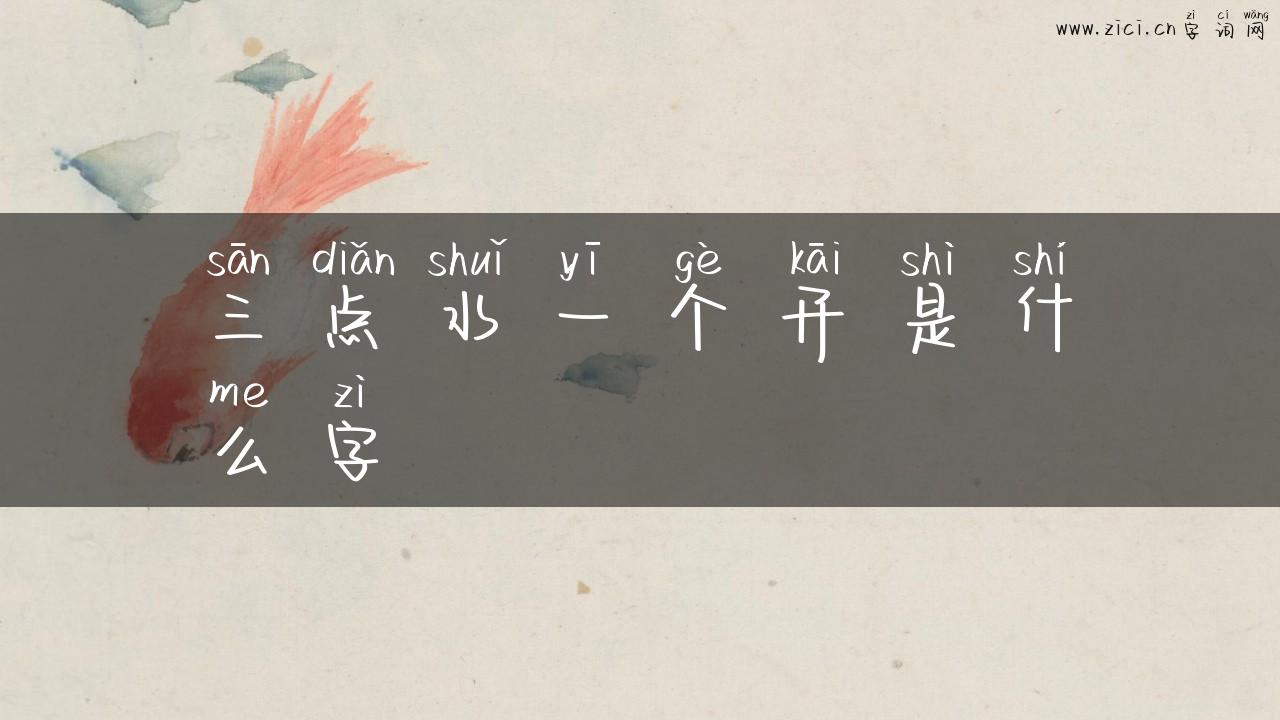 www.zici.cn zì cí wǎng
字词网
sān diǎn shuǐ yī gè kāi shì shí
三点水一个开是什
me zì
么字